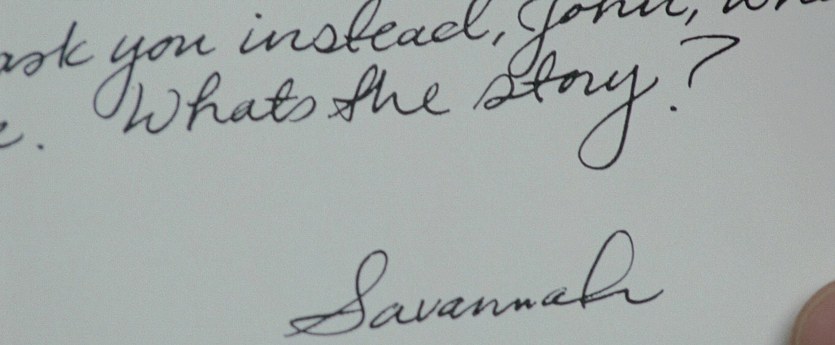 ask you instead, John,
. Whats the story?
Savannah